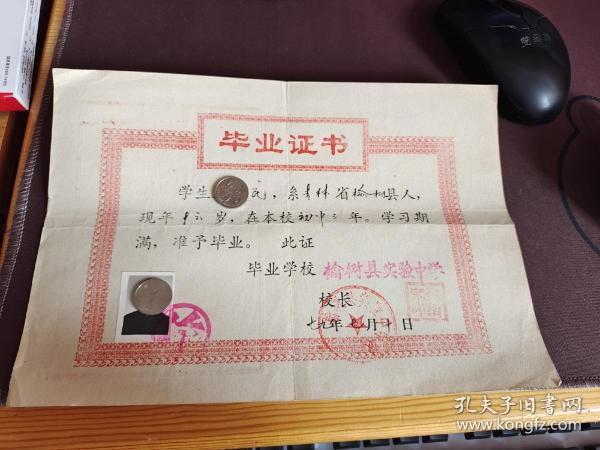 毕业证书
学生 民，系吉林省榆树县人，
现年十六岁，在本校初中三年。学习期
满，准予毕业。 此证
毕业学校 榆树县实验中学
校长
七九年七月十日
孔夫子旧书网
www.kongfz.com